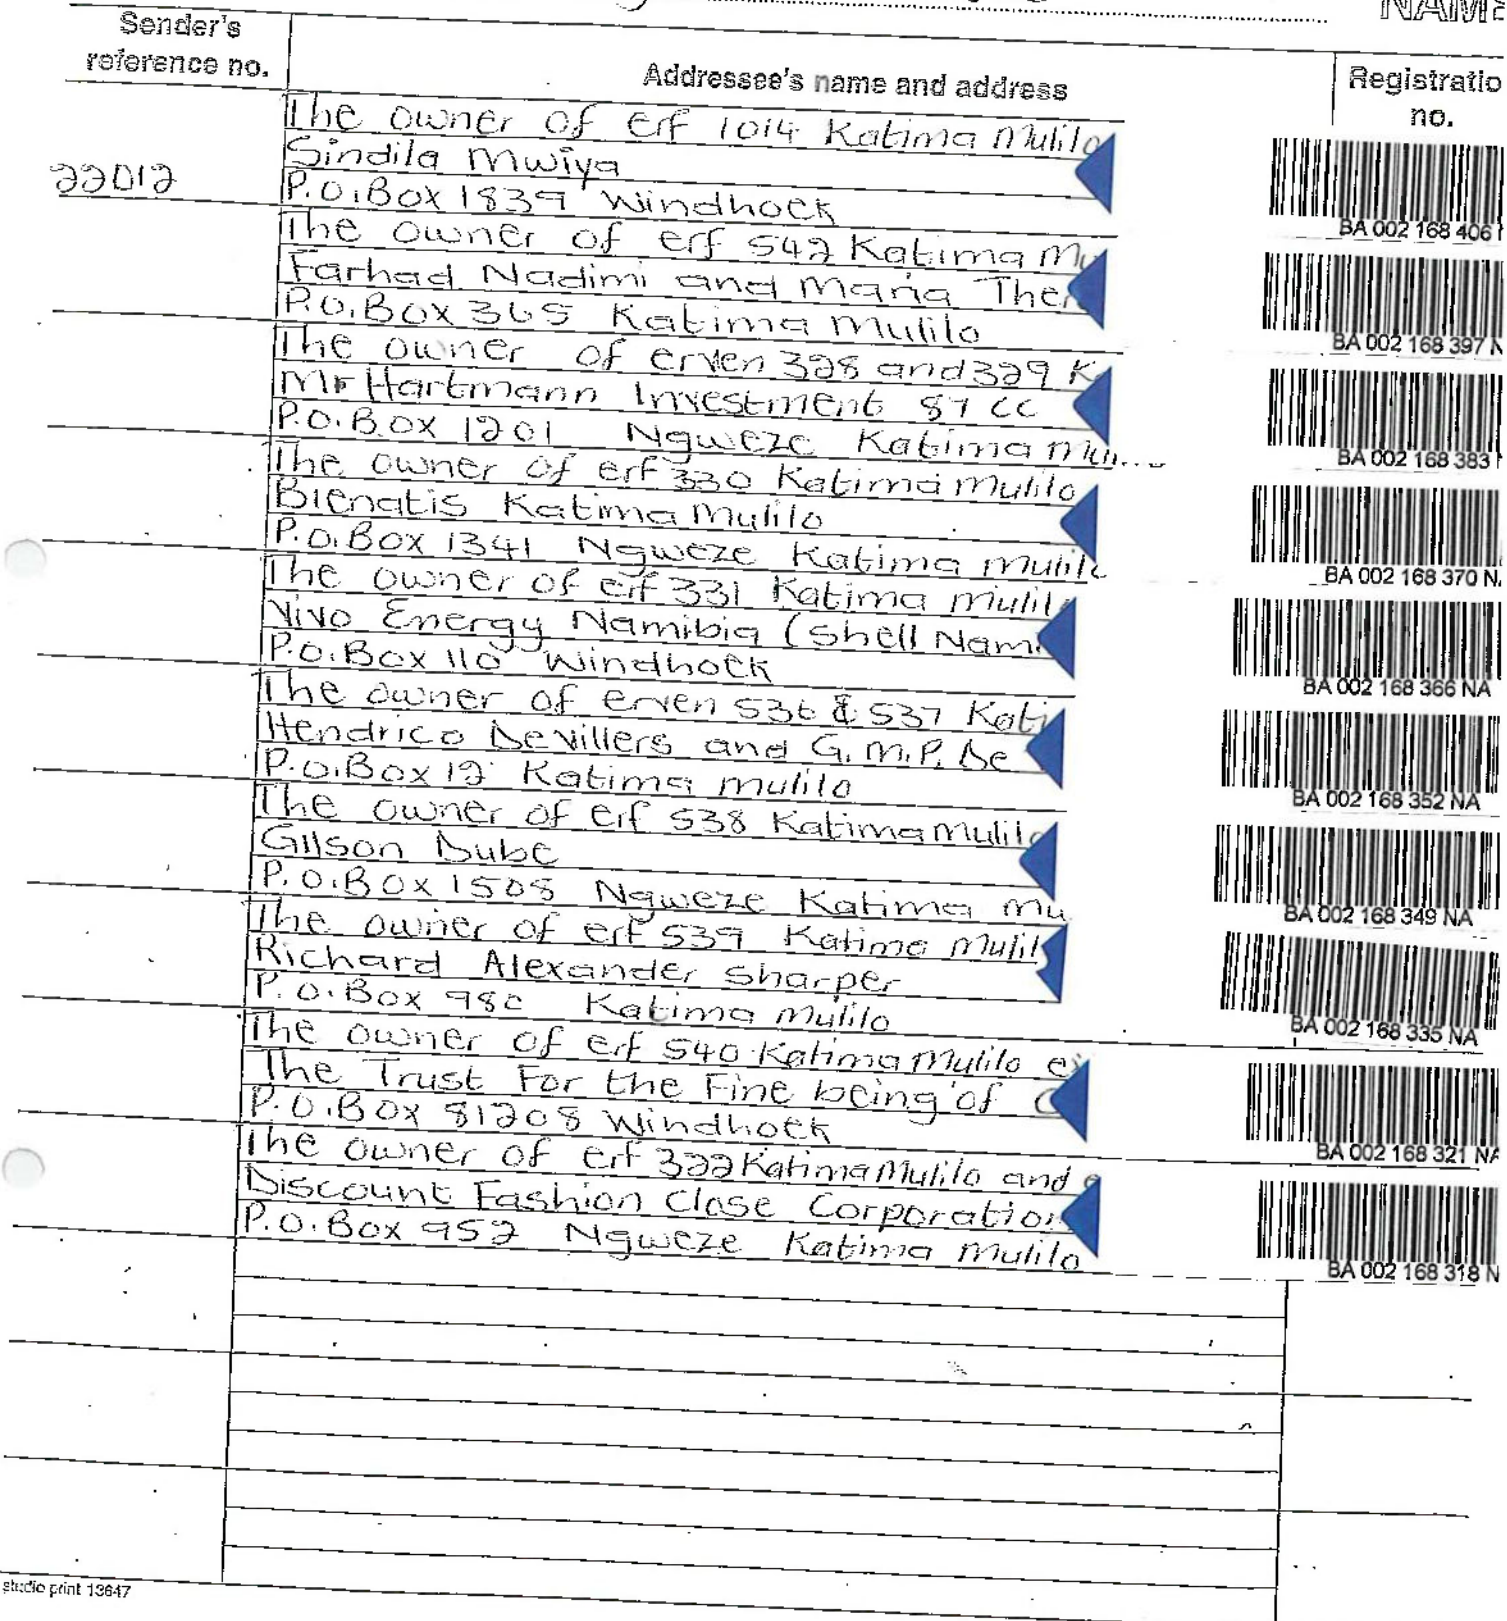 NAM
Sender's
reference no.
Addressee's name and address
Registratio
no.
22012
The owner of erf 1014 Katima Mulilo
Sindila Mwiya
P.O.Box 1839 Windhoek
BA 002 168 406
The owner of erf 542 Katima Mu
Farhad Nadimi and Maria Ther
P.O.Box 365 Katima Mulilo
BA 002 168 397 N
The owner of erven 328 and 329 K
Mr Hartmann Investment 87 cc
P.O.Box 1201 Ngweze Katima Mu
BA 002 168 383
The owner of erf 330 Katima Mulilo
Bienatis Katima Mulilo
P.O.Box 1341 Ngweze Katima Mulil
BA 002 168 370 N
The owner of erf 331 Katima Mulil
Vivo Energy Namibia (Shell Nam
P.O.Box 110 Windhoek
BA 002 168 366 NA
The owner of erven 536 & 537 Kati
Hendrico DeVillers and G.M.P. De
P.O.Box 12 Katima Mulilo
BA 002 168 352 NA
The owner of erf 538 Katima Mulilo
Gilson Dube
P.O.Box 1505 Ngweze Katima Mu
BA 002 168 349 NA
The owner of erf 539 Katima Mulil
Richard Alexander Sharper
P.O.Box 980 Katima Mulilo
BA 002 168 335 NA
The owner of erf 540 Katima Mulilo
The Trust For the Fine being of
P.O.Box 81208 Windhoek
BA 002 168 321 NA
The owner of erf 322 Katima Mulilo and
Discount Fashion Close Corporation
P.O.Box 952 Ngweze Katima Mulilo
BA 002 168 318 N
studio print 13647